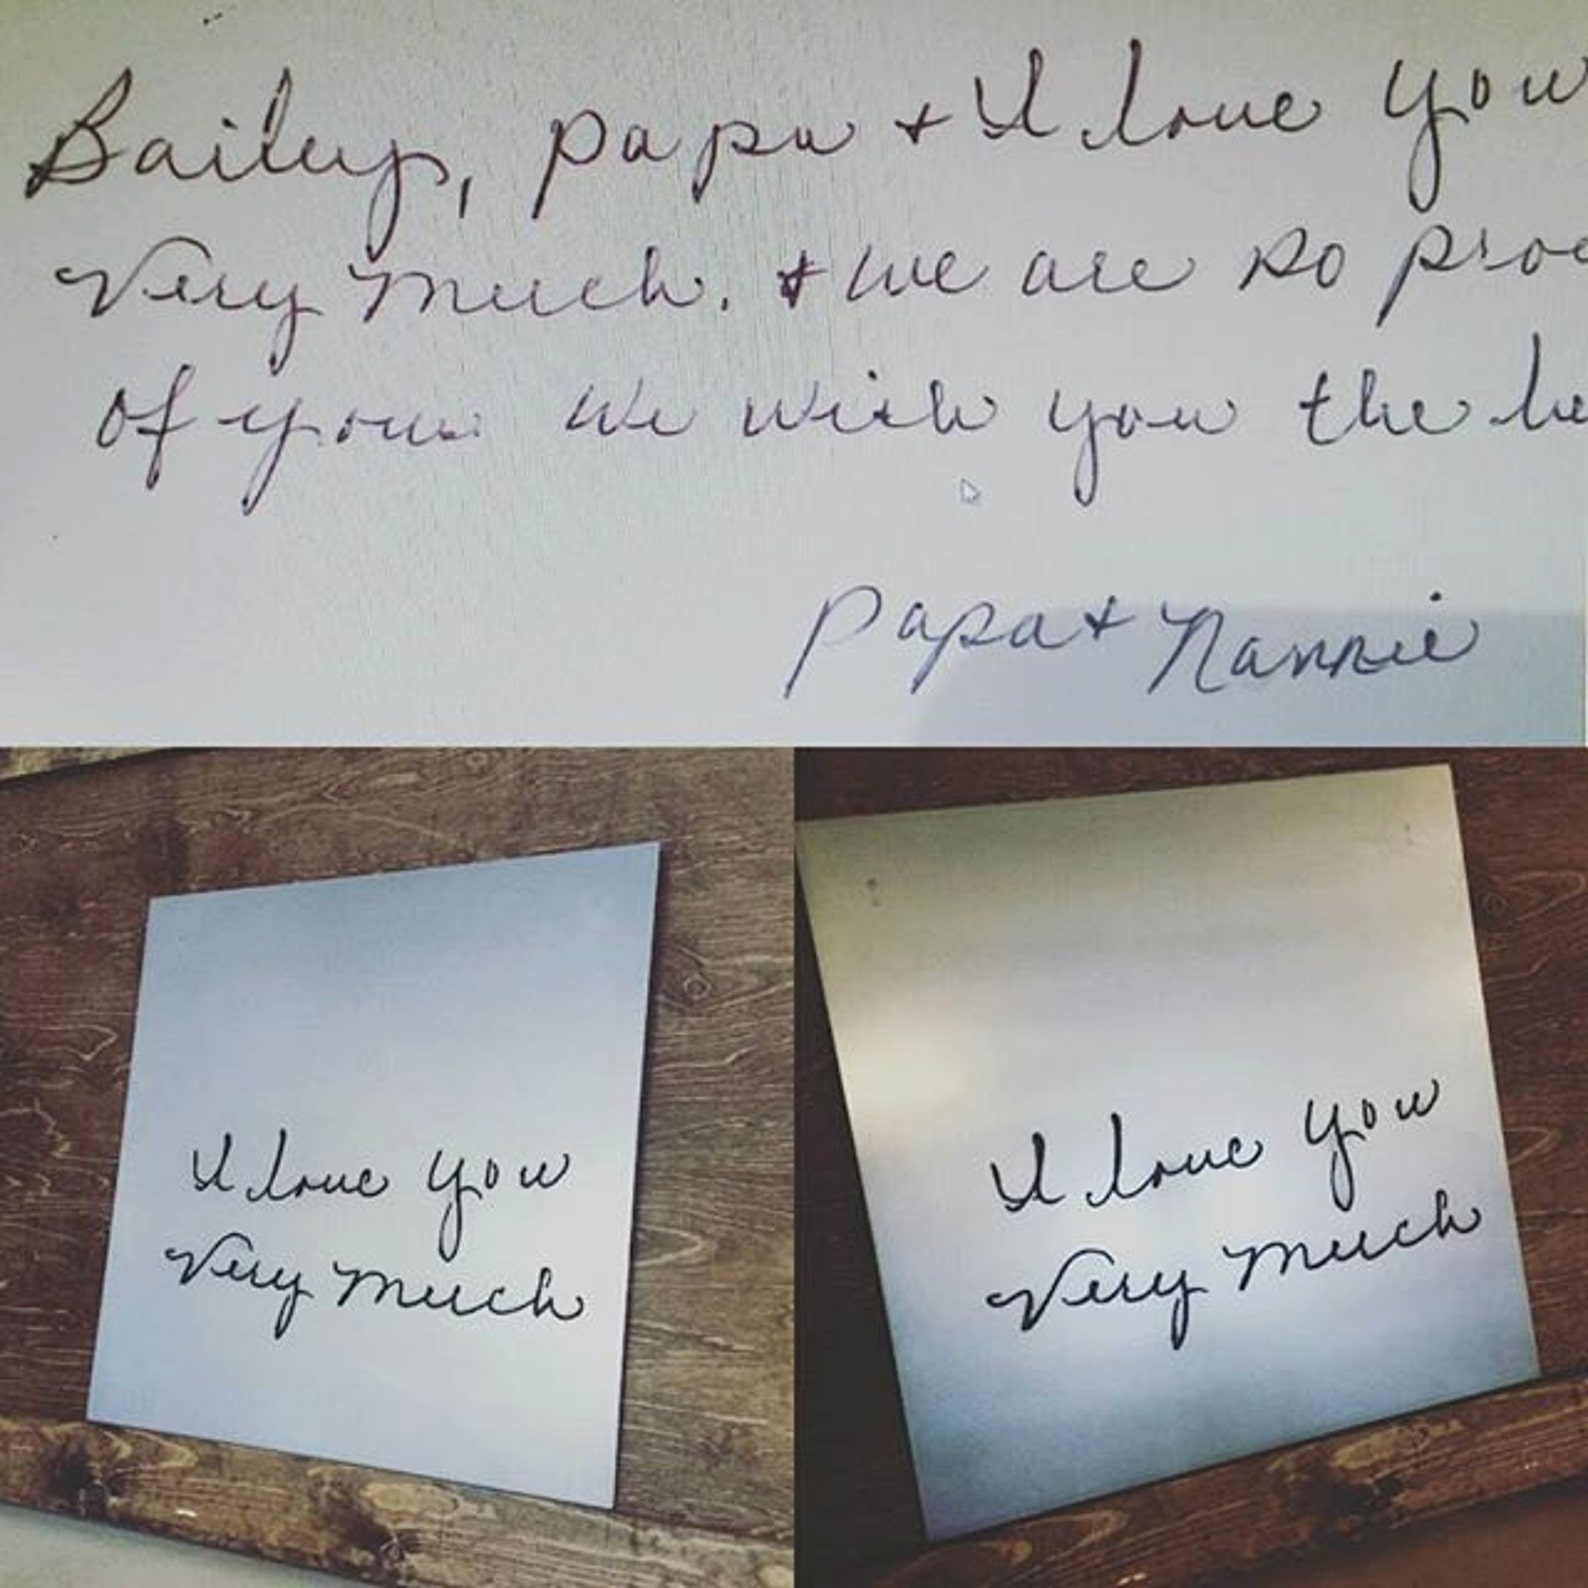 Bailey, papa + I love you
Very much. + we are so prou
of you. We wish you the be
Papa + Nannie
I love you
Very much
I love you
Very much